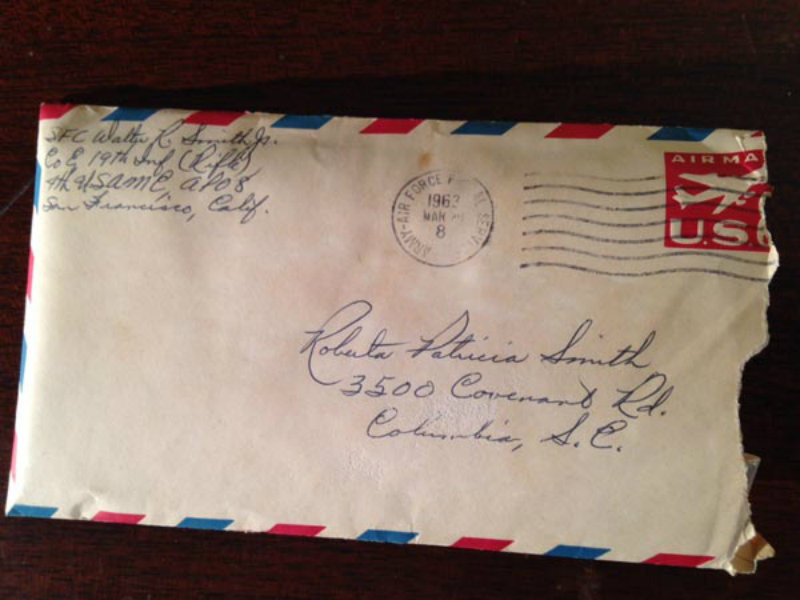 SFC Walter R. Smith Jr.
Co E, 19th Inf (Rifle)
APO 8
San Francisco, Calif.
ARMY-AIR FORCE SERV
1963
MAR
8
AIRMA
U.S.
Roberta Patricia Smith
3500 Covenant Rd.
Columbia, S.C.